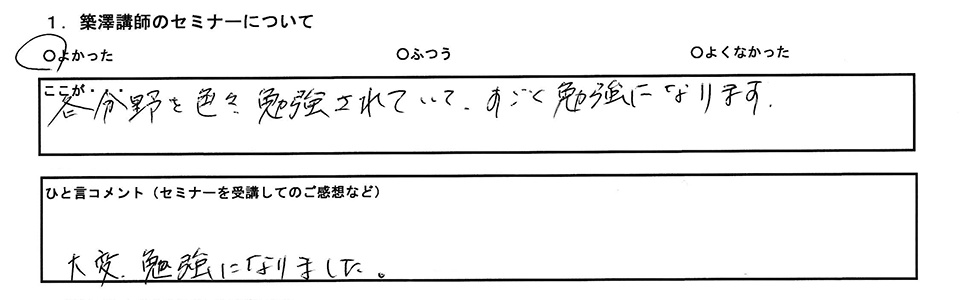 1．築澤講師のセミナーについて
○よかった ○ふつう ○よくなかった
ここが・・
各分野を色々勉強されていて、すごく勉強になります。
ひと言コメント（セミナーを受講してのご感想など）
大変、勉強になりました。